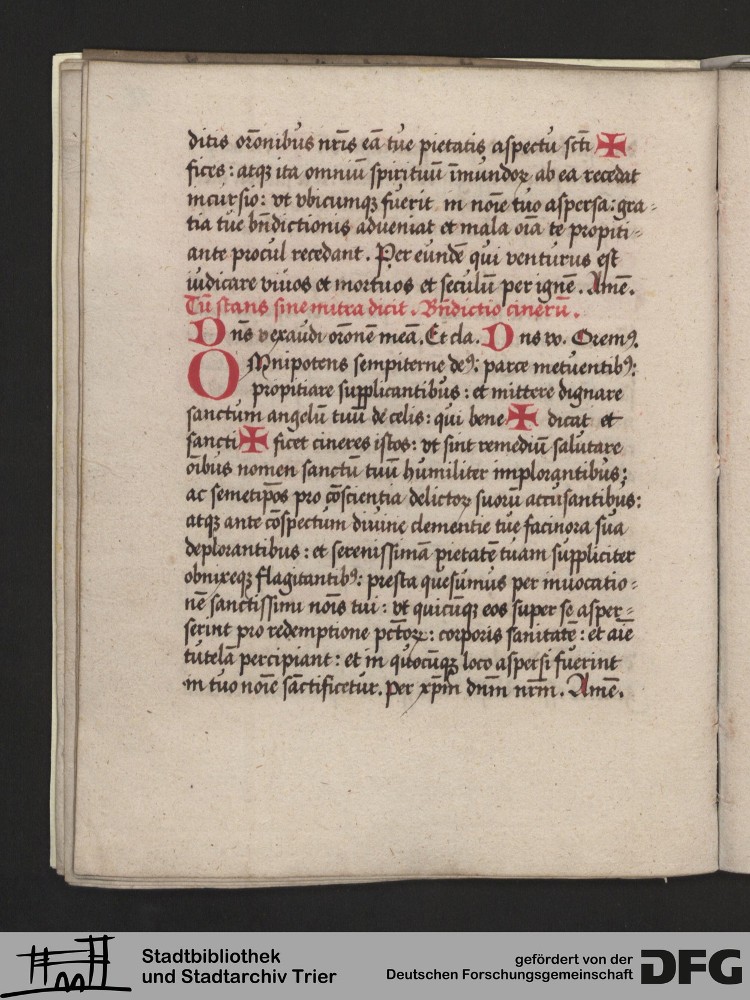 ditis orōnibus nr̄is eā tue pietatis aspectu sc̄ti ✠
fices: atqꝫ ita omniū spirituū īmundoꝝ ab ea recedat
incursio: vt vbicumqꝫ fuerit in noīe tuo aspersa: gra⸗
tia tue bn̄dictionis adueniat et mala oīa te propiti⸗
ante procul recedant. Per eundē qui venturus est
iudicare viuos et mortuos et seculū per ignē. Amē.
Tū stans sine mitra dicit. Bn̄dictio cinerū.
Dn̄s vexaudi orōnē meā. Et cla. Dns vo. Oremꝰ.
OMnipotens sempiterne deꝰ: parce metuentibꝰ:
propitiare supplicantibus: et mittere dignare
sanctum angelū tuū de celis: qui bene ✠ dicat et
sancti ✠ ficet cineres istos: vt sint remediū salutare
oībus nomen sanctū tuū humiliter implorantibus;
ac semetip̄os pro cōscientia delictoꝝ suorū accusantibus:
atqꝫ ante cōspectum diuine clementie tue facinora sua
deplorantibus: et serenissimā pietatē tuam suppliciter
obnixeqꝫ flagitantibꝰ: presta quesumus per inuocatio⸗
nē sanctissimi noīs tui: vt quicūqꝫ eos super se asper⸗
serint pro redemptione pctōꝝ: corporis sanitatē: et aīe
tutelā percipiant: et in quocūqꝫ loco aspersi fuerint
in tuo noīe sāctificetur. per xp̄m dn̄m nr̄m. Amē.
Stadtbibliothek
und Stadtarchiv Trier
gefördert von der
Deutschen Forschungsgemeinschaft
DFG